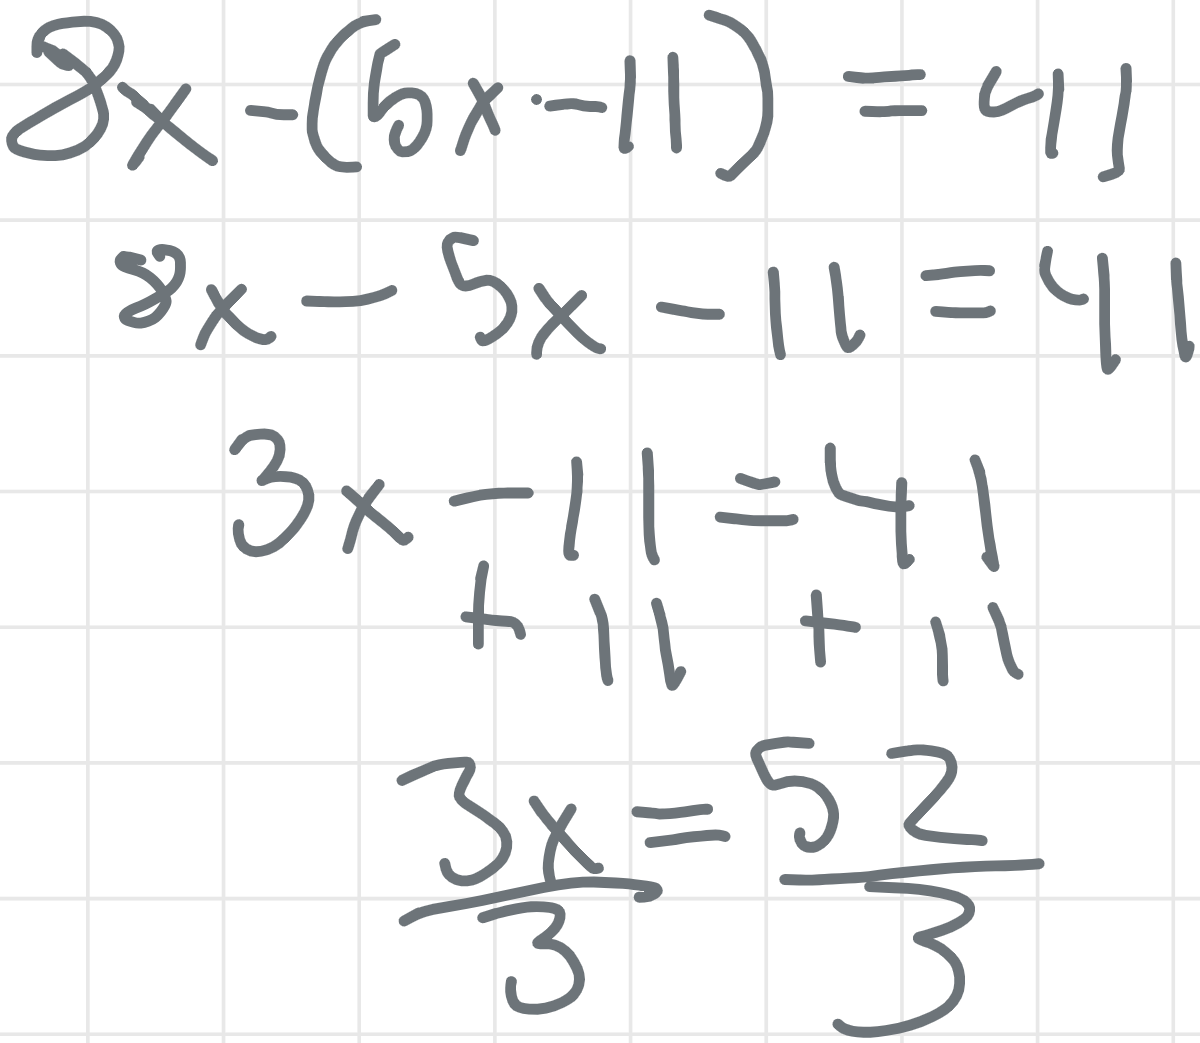 8x - (5x - 11) = 41
8x - 5x - 11 = 41
3x - 11 = 41
+ 11 + 11
3x = 52
3 3